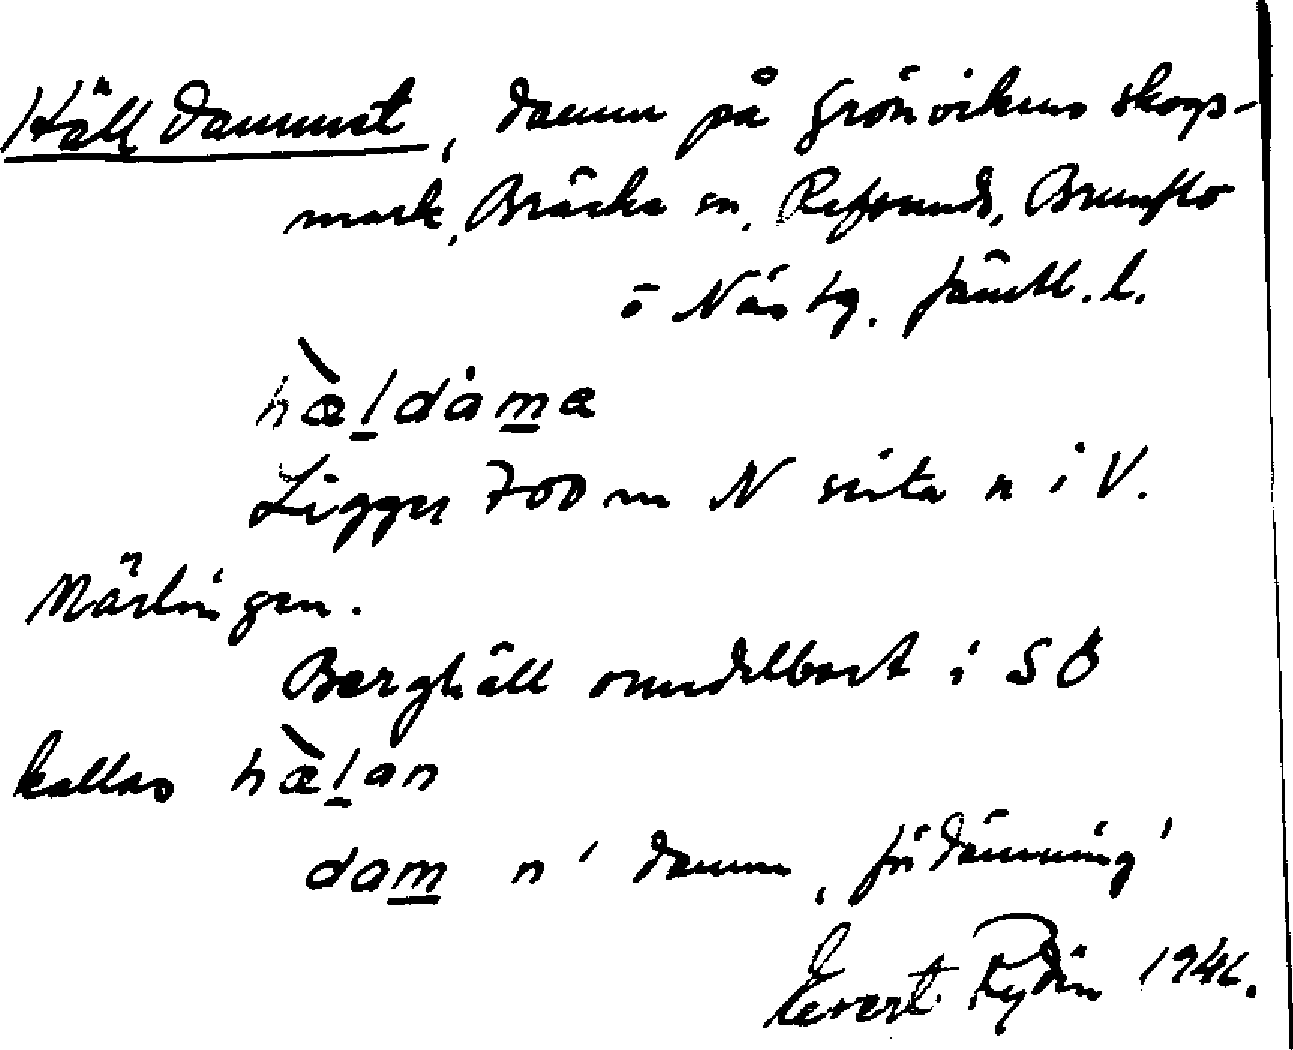 Häll dammet, damm på Grönvikens skogs-
mark, Bräcke sn, Refsunds, Brunflo
o Näs tg. Jämtl. l.
hæ̀l̲dȧm̲a
Ligger 700 m N sista n i V.
Närlingen.
Berghäll omedelbart i SÖ
kallas hæ̀l̲an
dam̲ n ' damm, fördämning'
Evert Rydin 1946.